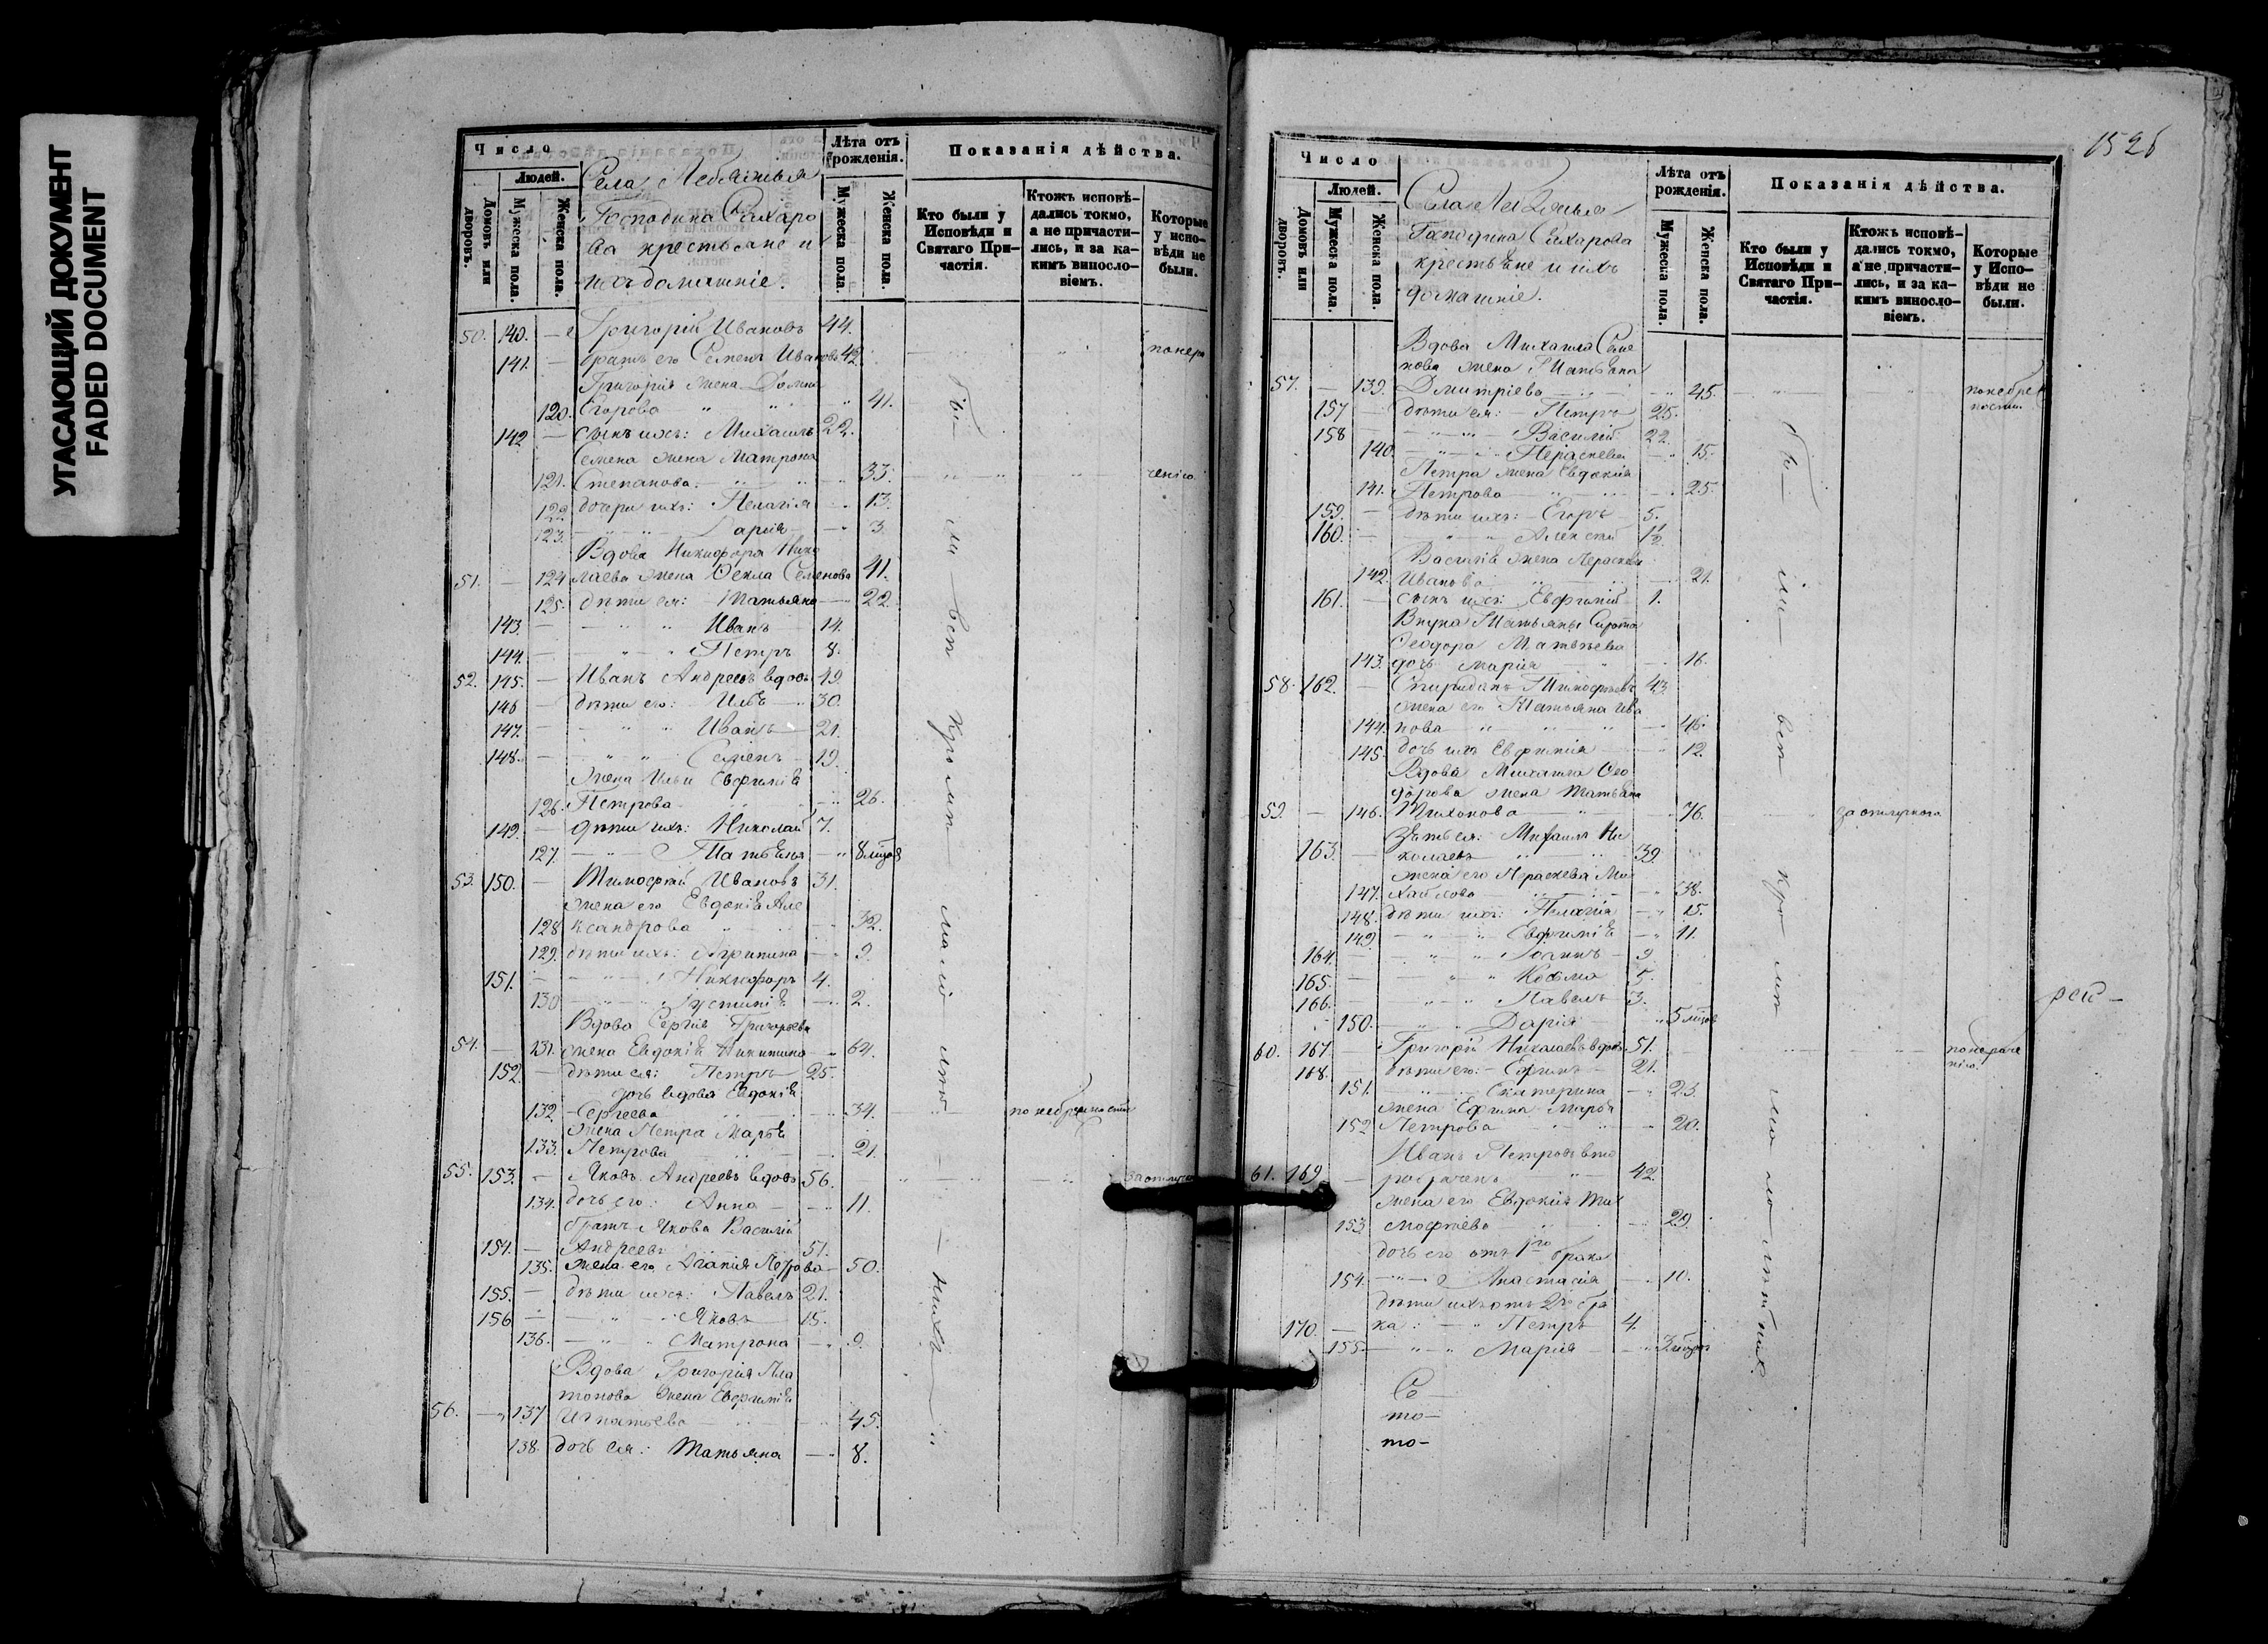 УГАСАЮЩИЙ ДОКУМЕНТ
FADED DOCUMENT
Число
Людей.
Домовъ или дворовъ.
Мужеска пола.
Женска пола.
Села
Господина
ва крестьяне и
ихъ домашніе.
Лѣта отъ рожденія.
Мужеска пола.
Женска пола.
Показанія дѣйства.
Кто были у Исповѣди и Святаго Причастія.
Ктожъ исповѣдались токмо, а не причастились, и за какимъ винословіемъ.
Которые у исповѣди не были.
50. 140. — Григорій Ивановъ 44.
141. — братъ его Семенъ Ивановъ 42.
Григорія жена Домна
120. Егорова 41.
142 — сынъ ихъ: Михаилъ 22.
Семена жена Матрона
121. Степанова 33.
122 дочери ихъ: Пелагія 13.
123. Дарія 3.
Вдова Никифора Нико
51. — 124 лаева жена Фекла Семенова 41.
125. дѣти ея: Татьяна 22.
143. — Иванъ 14.
144. — Петръ 8.
52. 145. — Иванъ Андреевъ вдовъ 49.
146 — дѣти его: Илья 30.
147. — Иванъ 21.
148. — Семенъ 19.
жена Ильи Евфимія
126. Петрова 26.
149. — дѣти ихъ: Николай 7.
127. 8
53. 150. — Тимофей Ивановъ 31.
жена его Евдокія Але
128 ксандрова 32.
129. дѣти ихъ: Агрипина 9.
151. — Никифоръ 4.
130 — Іустинія 2.
Вдова Сергія Григорьева
54. — 131. жена Евдокія Никитина 64.
152. — дѣти ея: Петръ 25.
дочь вдова Евдокія
132. Сергеева 34. по небрежности
жена Петра Марья
133. Петрова 21.
55. 153. — Яковъ Андреевъ вдовъ 56.
134. дочь его: Анна 11.
братъ Якова Василій
154. — Андреевъ 51.
135. жена его Агапія Петрова 50.
155. — дѣти ихъ: Павелъ 21.
156 — Яковъ 15.
136. — Матрона 9.
Вдова Григорія Пла
тонова жена Евфимія
56. — 137 Игнатьева 45.
138. дочь ея: Татьяна 8.
Число
Людей.
Домовъ или дворовъ.
Мужеска пола.
Женска пола.
Села
Господина
крестьяне и ихъ
домашніе.
Лѣта отъ рожденія.
Мужеска пола.
Женска пола.
Показанія дѣйства.
Кто были у Исповѣди и Святаго Причастія.
Ктожъ исповѣдались токмо, а не причастились, и за какимъ винословіемъ.
Которые у Исповѣди не были.
Вдова Михаила Семе
нова жена Татьяна
57. — 139. Дмитріева 45. по небреж
ности
157 — дѣти ея: Петръ 25.
158 — Василій 22.
140. — Параскева 15.
Петра жена Евдокія
141. Петрова 25.
159. — дѣти ихъ: Егоръ 5.
160. — Алексѣй 1½
Василія жена Параскева
142. Иванова 21.
161. — сынъ ихъ: Евфимій 1.
Внука Татьяны Сирота
Феодора Матвѣева
143. дочь Марія 16.
58. 162. — Спиридонъ Тимофѣевъ 43
жена его Татьяна Ива
144. нова 46.
145. дочь ихъ Евфимія 12.
Вдова Михаила Фео
дорова жена Татьяна
59. — 146. Тихонова 76. за отлучкою
зять ея: Михаилъ Ни
163. — колаевъ 39.
жена его Параскева Ми
147. хайлова 38.
148. дѣти ихъ: Пелагія 15.
149 — Евфимія 11.
164. — Іоаннъ 9.
165. — Косьма 5.
166. — Павелъ 3.
150. — Дарія 5
60. 167. — Григорій Николаевъ вдовъ 51.
168. — дѣти его: Ефимъ 21.
151. — Екатерина 23.
жена Ефима Марфа
152 Петрова 20.
Иванъ Петровъ вто
61. 169. — робраченъ 42.
жена его Евдокія Ти
153 мофѣева 29.
дочь его отъ 1го брака
154. — Анастасія 10.
дѣти ихъ отъ 2го бра
170. — ка: Петръ 4.
155 — Марія 3
Се—
то—
то—